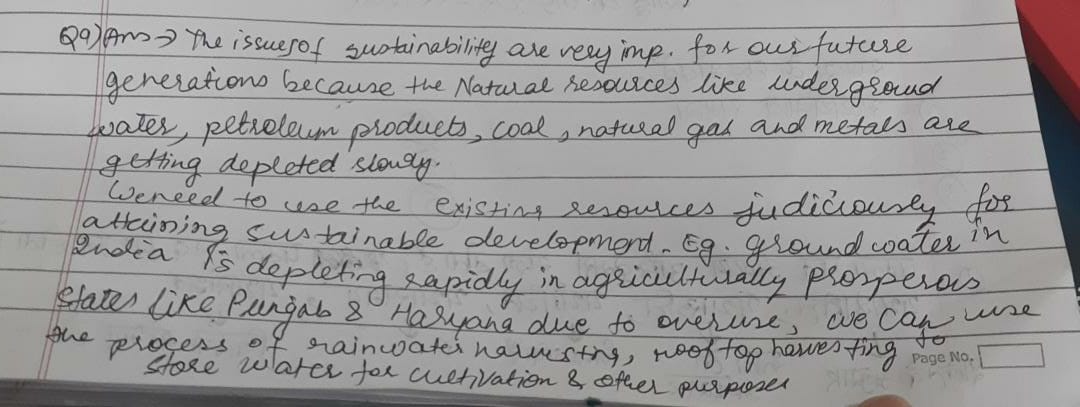 Q9) Ans → The issues of sustainability are very imp. for our future
generations because the Natural resources like underground
water, petroleum products, coal, natural gas and metals are
getting depleted slowly.
We need to use the existing resources judiciously for
attaining sustainable development. Eg. ground water in
India is depleting rapidly in agriculturally prosperous
states like Punjab & Haryana due to overuse, we can use
the process of rainwater harvesting, rooftop harvesting to
store water for cultivation & other purposes
Page No.